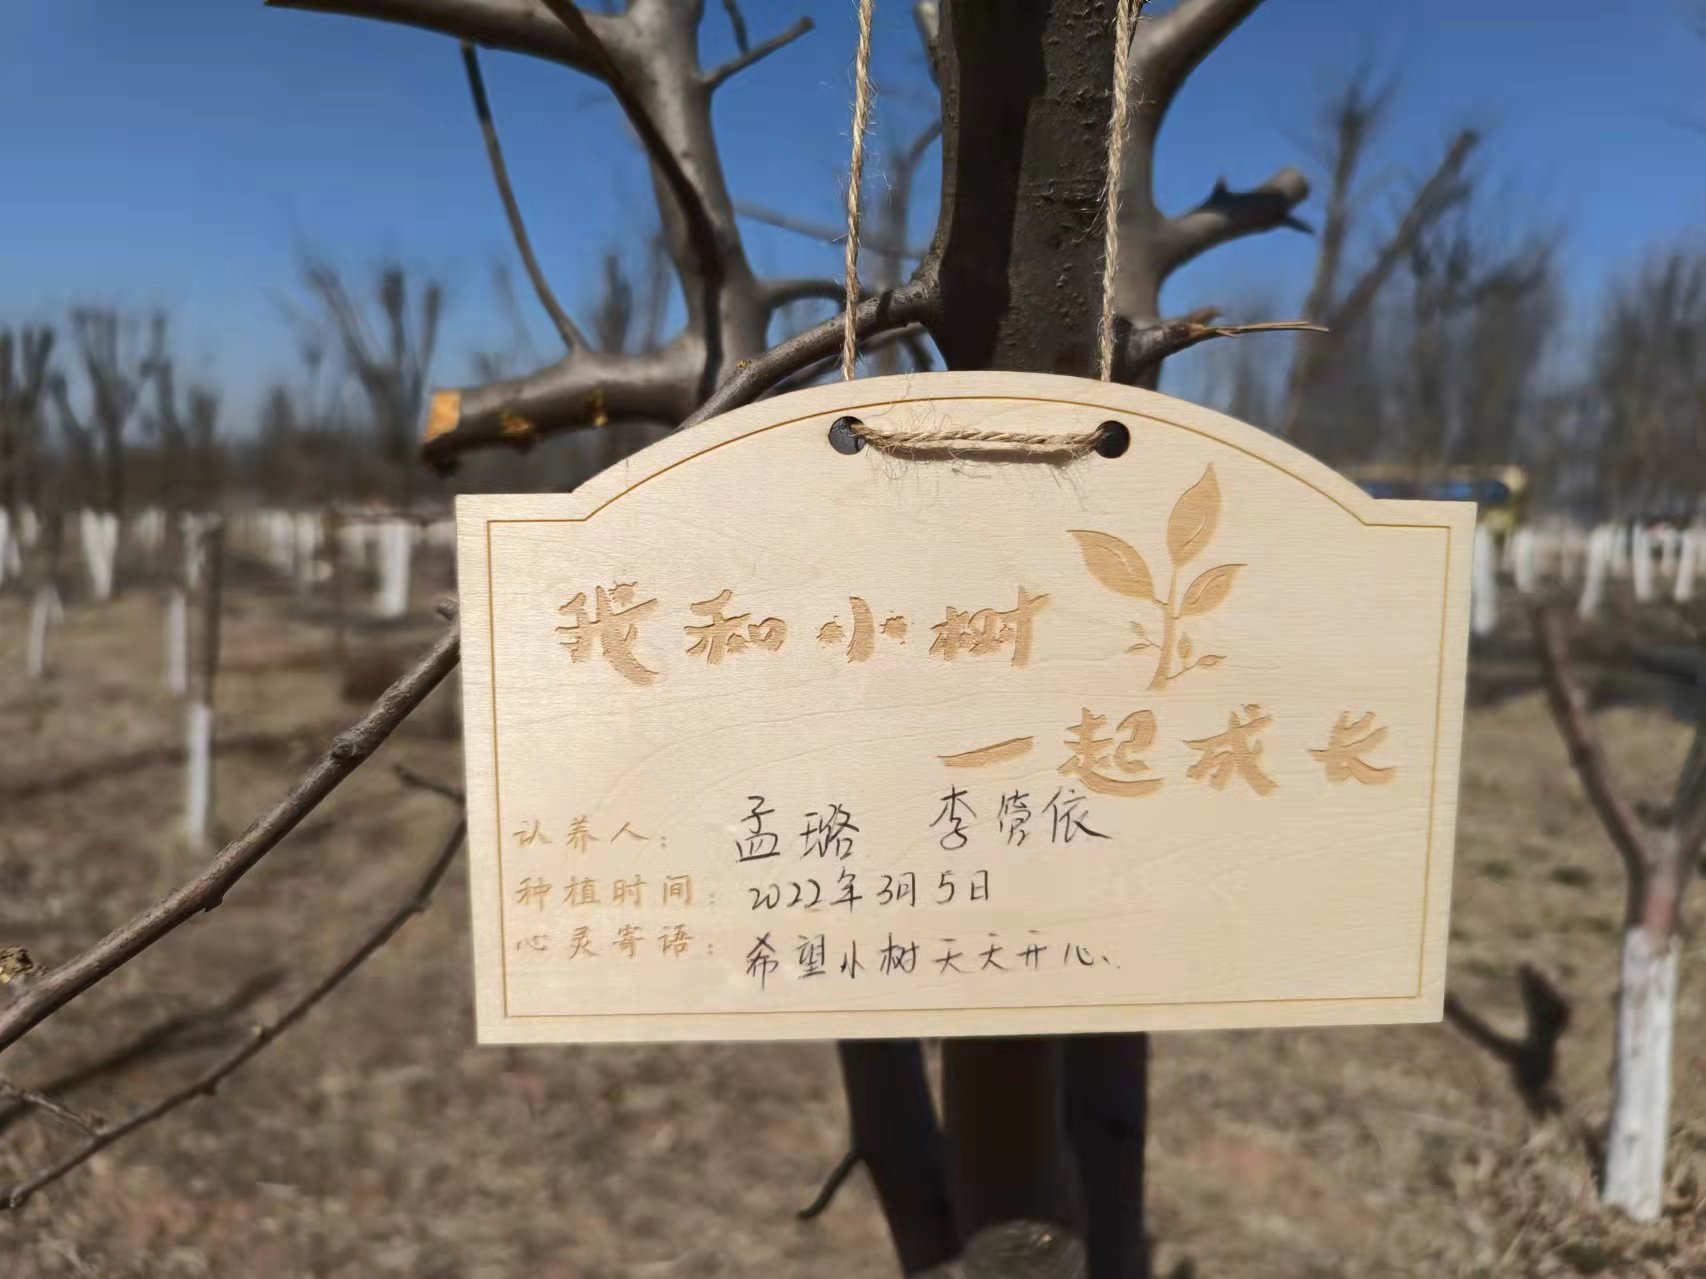 我和小树
一起成长
认养人：孟璐 李管依
种植时间：2022年3月5日
心灵寄语：希望小树天天开心、